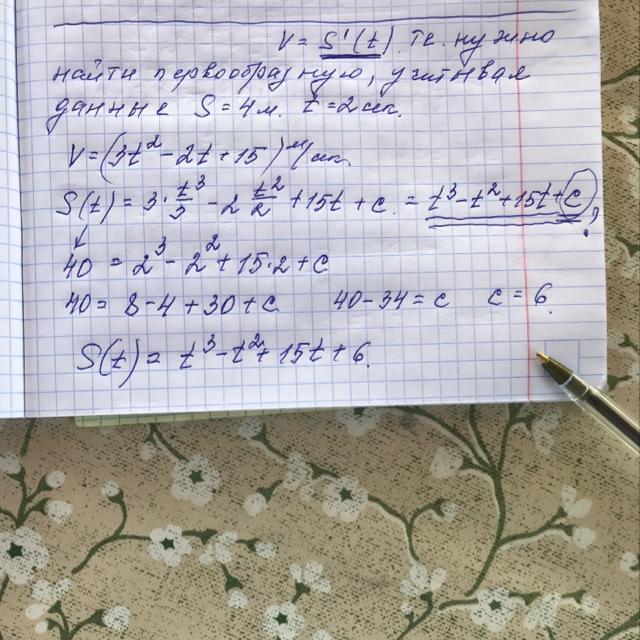 V = S'(t). Т.е. нужно
найти первообразную, учитывая
данные S = 4 м. t = 2 сек.
V = (3t² - 2t + 15) м/сек.
S(t) = 3·t³/3 - 2 t²/2 + 15t + c. = t³ - t² + 15t + c;
40 = 2³ - 2² + 15·2 + c
40 = 8 - 4 + 30 + c 40 - 34 = c c = 6.
S(t) = t³ - t² + 15t + 6.